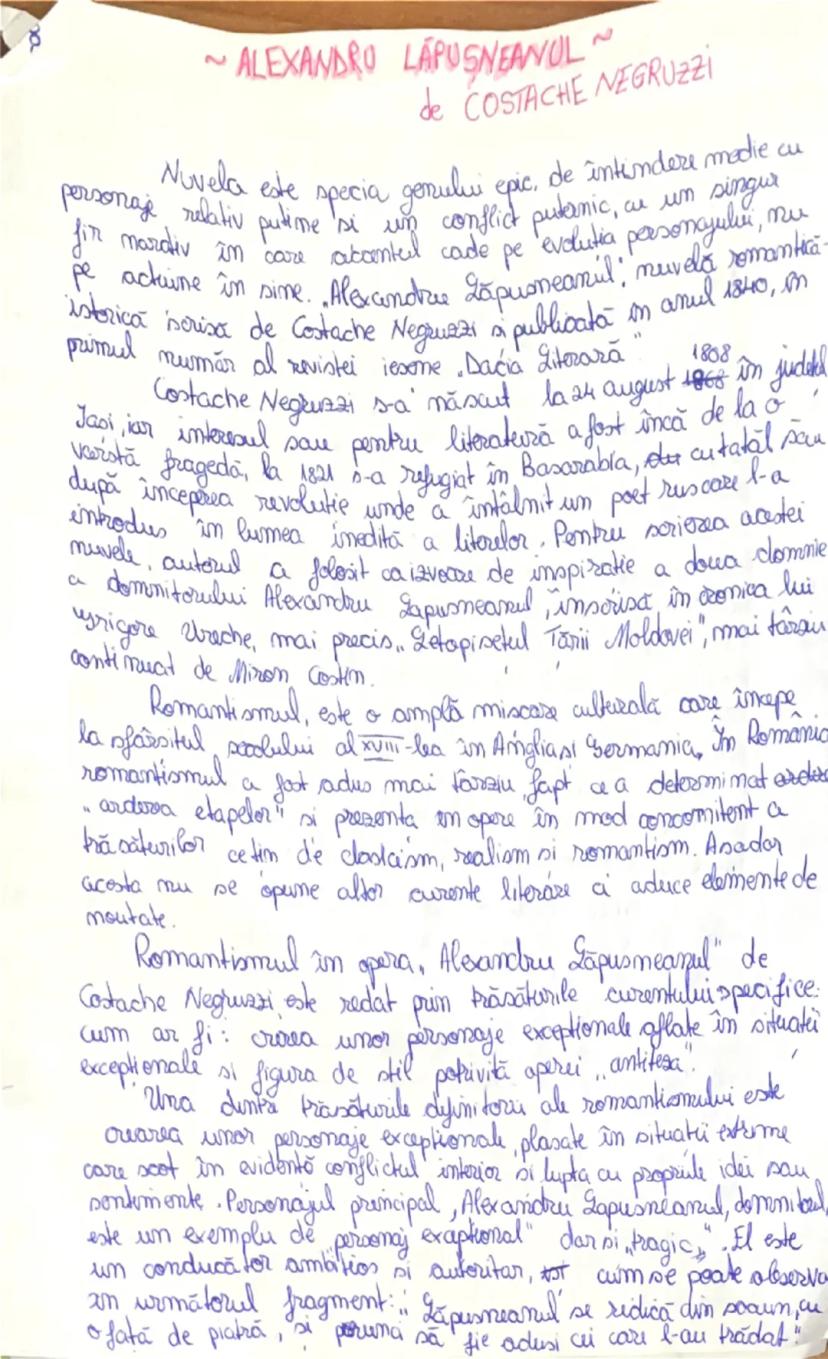 ~ ALEXANDRU LĂPUȘNEANUL ~
de COSTACHE NEGRUZZI
Nuvela este specia genului epic, de întindere medie cu
personaje relativ puține si un conflict puternic, cu un singur
fir nardiv în care accentul cade pe evolutia personajului, nu
pe actiune în sine. „Alexandru Lăpusneanul", nuvelă romantică-
istorică scrisă de Costache Negruzzi a publicată in anul 1840, în
primul număr al revistei iesene „Dacia Literară"
Costache Negruzzi s-a născut la 24 august 1808 în județul
Iasi, iar interesul sau pentru literatură a fost încă de la o
varstă fragedă, la 1821 s-a refugiat în Basarabia, cu tatăl său
după începerea revolutie unde a întâlnit un poet rus care l-a
introdus în lumea inedită a literelor. Pentru scrierea acestei
nuvele, autorul a folosit ca izvoare de inspiratie a doua domnie
a domnitorului Alexandru Lapusneanul, înscrisă în cronica lui
Grigore Ureche, mai precis „Letopisetul Tării Moldovei", mai târziu
continuat de Miron Costin.
Romantismul, este o amplă miscare culturală care începe
la sfârsitul secolului al XVIII-lea în Anglia si Germania. În România
romantismul a fost adus mai tarziu fapt ce a determinat
„arderea etapelor" si prezenta in opere în mod concomitent a
trăsăturilor ce tin de clasicism, realism si romantism. Asadar
acesta nu se opune altor curente literare ci aduce elemente de
noutate.
Romantismul în opera „Alexandru Lăpusneanul" de
Costache Negruzzi, este redat prin trăsăturile curentului specifice:
cum ar fi: crearea unor personaje exceptionale aflate în situatii
exceptionale si figura de stil potrivită operei „antiteza".
Una dintre trăsăturile definitorii ale romantismului este
crearea unor personaje exceptionale, plasate în situatii extreme
care scot în evidentă conflictul interior si lupta cu propriile idei sau
sentimente. Personajul principal, Alexandru Lapusneanul, domnitorul,
este un exemplu de „personaj exceptional" dar si „tragic". El este
un conducător ambitios si autoritar, cum se poate observa
în următorul fragment: „Lăpusneanul se ridică din scaun, cu
o fată de piatră, si porunci să fie adusi cei care l-au trădat"